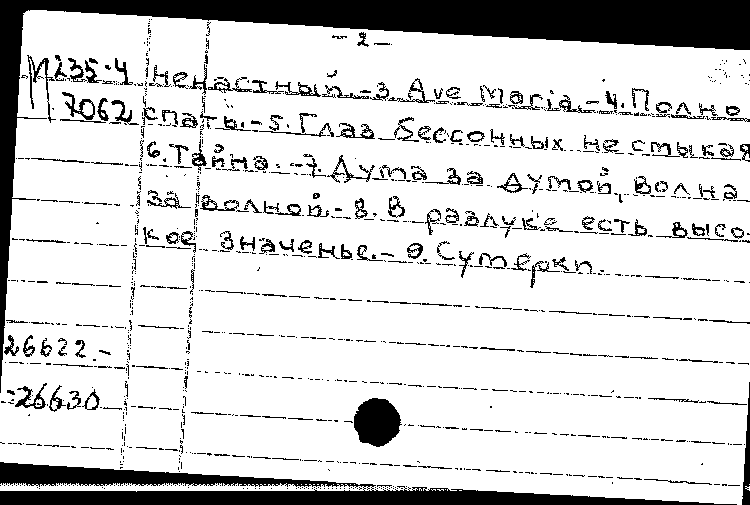 - 2 -
П 235.4 ненастный. - 3. Ave Maria. - 4. Полно
7062 спать. - 5. Глаз бессонных не смыкая
6. Тайна. - 7. Дума за думой, волна
за волной. - 8. В разлуке есть высо-
кое значенье. - 9. Сумерки.
26622. -
-26630